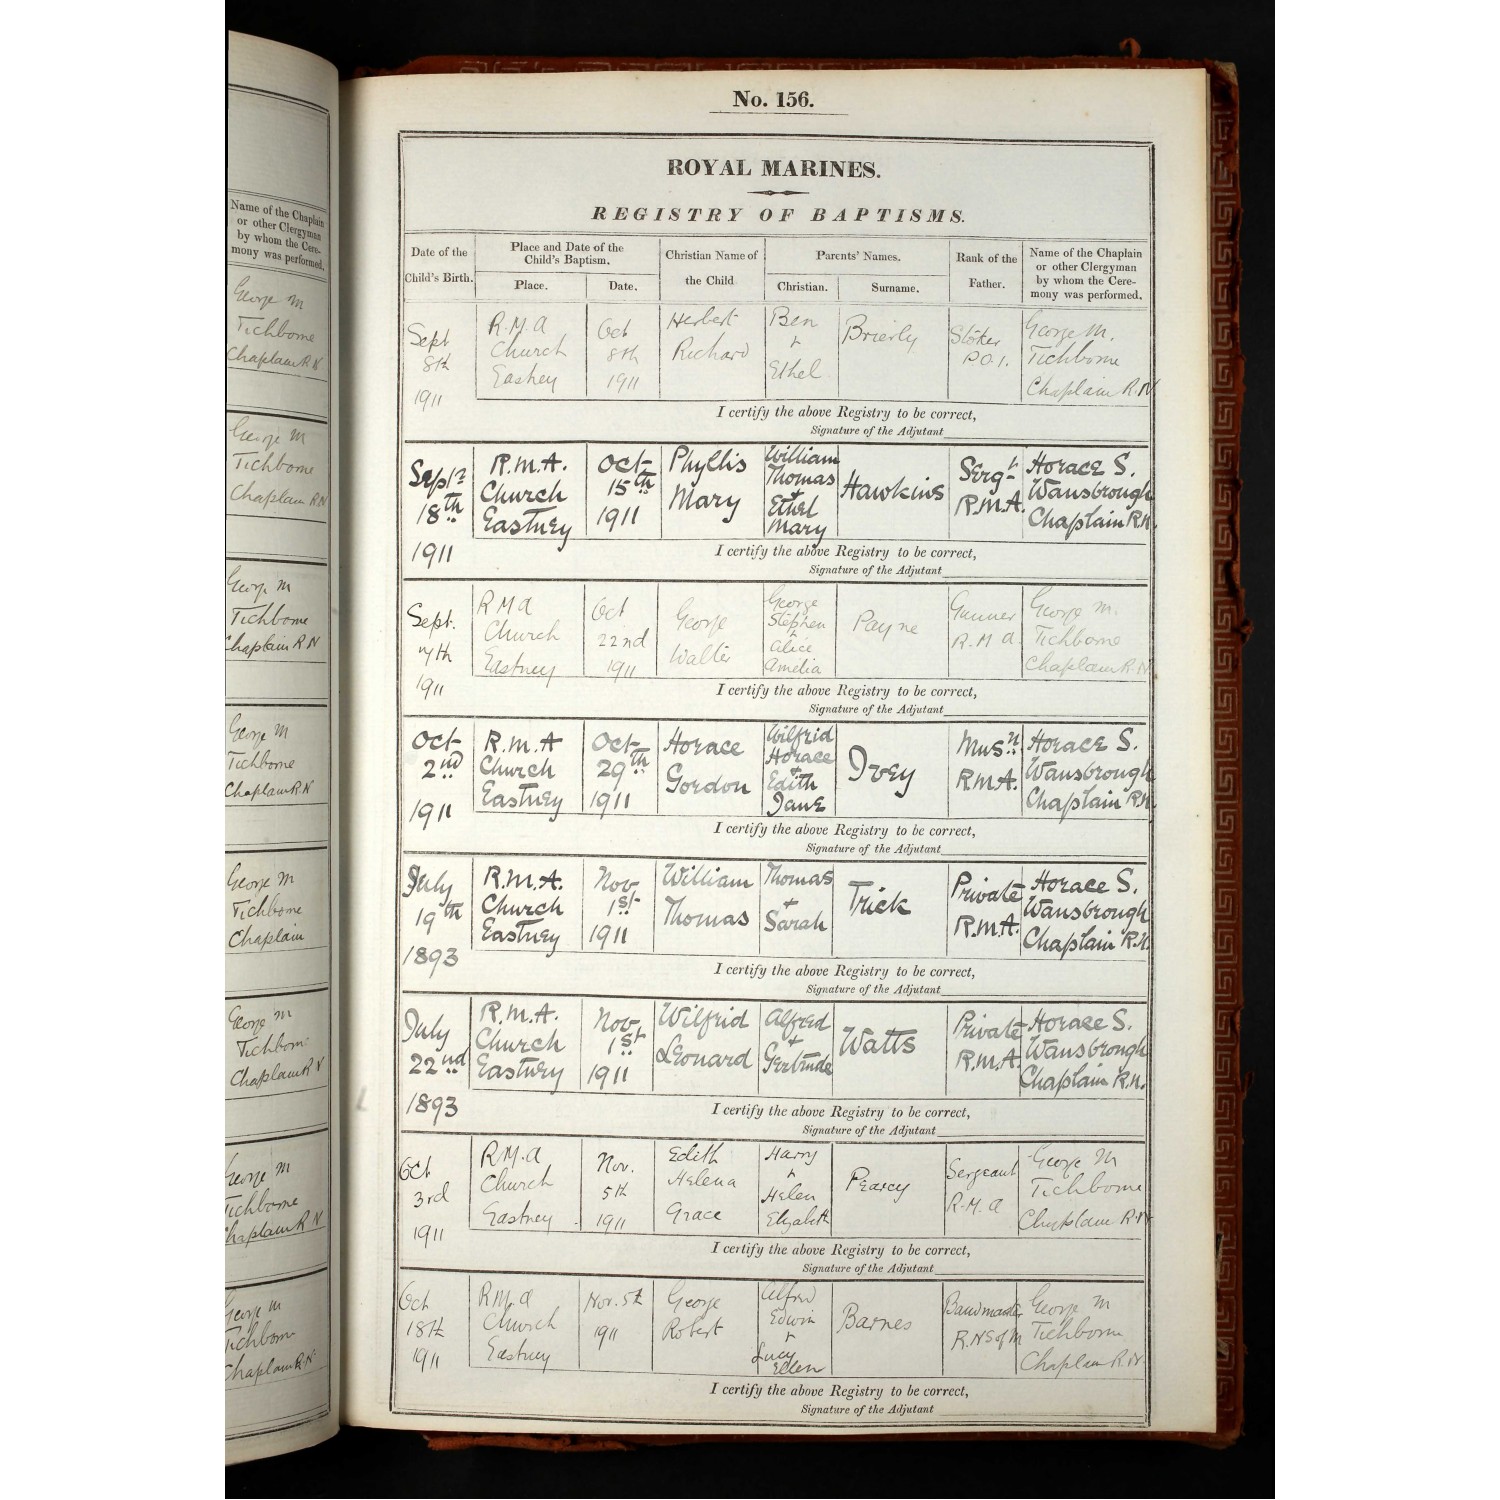 No. 156.
ROYAL MARINES.
REGISTRY OF BAPTISMS.
Date of the Child's Birth.
Place and Date of the Child's Baptism.
Place.
Date.
Christian Name of the Child
Parents' Names.
Christian.
Surname.
Rank of the Father.
Name of the Chaplain or other Clergyman by whom the Ceremony was performed.
Sept 8th 1911
R.M.A Church Eastney
Oct 8th 1911
Herbert Richard
Ben + Ethel
Brierly
Stoker P.O.1.
George M. Tichborne Chaplain R.N
I certify the above Registry to be correct,
Signature of the Adjutant
Sept 18th 1911
R.M.A. Church Eastney
Oct 15th 1911
Phyllis Mary
William Thomas + Ethel Mary
Hawkins
Sergt R.M.A.
Horace S. Wansbrough Chaplain R.N.
I certify the above Registry to be correct,
Signature of the Adjutant
Sept. 7th 1911
R M A Church Eastney
Oct 22nd 1911
George Walter
George Stephen + Alice Amelia
Payne
Gunner R.M.A.
George M. Tichborne Chaplain R.N.
I certify the above Registry to be correct,
Signature of the Adjutant
Oct 2nd 1911
R.M.A Church Eastney
Oct 29th 1911
Horace Gordon
Wilfrid Horace + Edith Jane
Ivey
Musn R.M.A.
Horace S. Wansbrough Chaplain R.N.
I certify the above Registry to be correct,
Signature of the Adjutant
July 19th 1893
R.M.A. Church Eastney
Nov 1st 1911
William Thomas
Thomas + Sarah
Trick
Private R.M.A.
Horace S. Wansbrough Chaplain R.N.
I certify the above Registry to be correct,
Signature of the Adjutant
July 22nd 1893
R.M.A. Church Eastney
Nov 1st 1911
Wilfrid Leonard
Alfred + Gertrude
Watts
Private R.M.A.
Horace S. Wansbrough Chaplain R.N.
I certify the above Registry to be correct,
Signature of the Adjutant
Oct 3rd 1911
R.M.A Church Eastney
Nov. 5th 1911
Edith Helena Grace
Harry + Helen Elizabeth
Pearcy
Sergeant R.M.A
George M Tichborne Chaplain R.N
I certify the above Registry to be correct,
Signature of the Adjutant
Oct 18th 1911
R.M.A Church Eastney
Nov. 5th 1911
George Robert
Alfred Edwin + Lucy Ellen
Barnes
Bandmaster R.N S of M
George M Tichborne Chaplain R.N.
I certify the above Registry to be correct,
Signature of the Adjutant
Name of the Chaplain or other Clergyman by whom the Ceremony was performed.
George M Tichborne Chaplain R N
George M Tichborne Chaplain R N
George M Tichborne Chaplain R N
George M Tichborne Chaplain R N
George M Tichborne Chaplain
George M Tichborne Chaplain R N
George M Tichborne Chaplain R N
George M Tichborne Chaplain R.N.